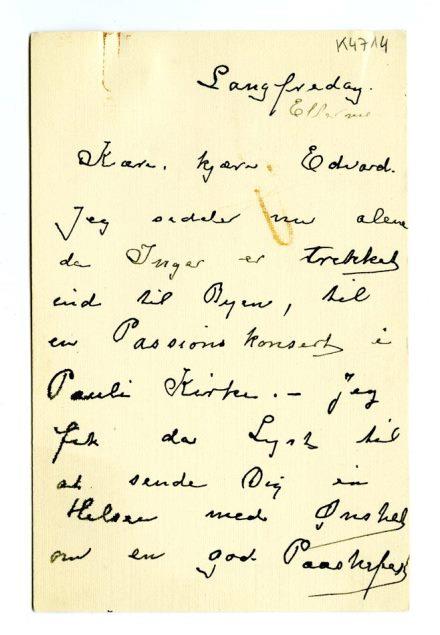 K4714
Langfredag.
Kære, kjære Edvard.
Jeg sidder nu alene
da Inger er trekket
ind til Byen, til
en Passionskonsert i
Pauli Kirke. – Jeg
fik da Lyst til
at sende Dig en
Hilsen med Ønsket
om en god Paaskefest